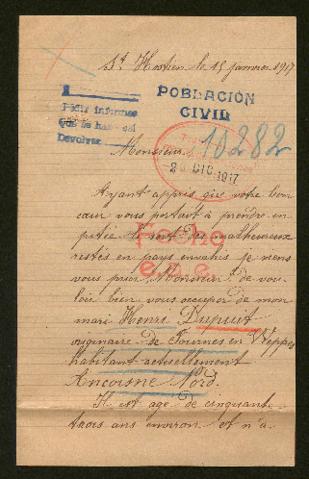 St Hostien le 15 janvier 1917
POBLACIÓN
CIVIL
Pedir informes
Devolver
10282
Monsieur
2 DIC 1917
Ayant appris que votre bon
cœur vous portait à prendre en
pitié le sort de malheureux
restés en pays envahis je viens
vous prier Monsieur de vou-
loir bien vous occuper de mon
mari Henri Dupuit
originaire de Fournes en Weppes
habitant actuellement
Ancoisne Nord.
Il est age de cinquante
trois ans environ et n'a
Fecho